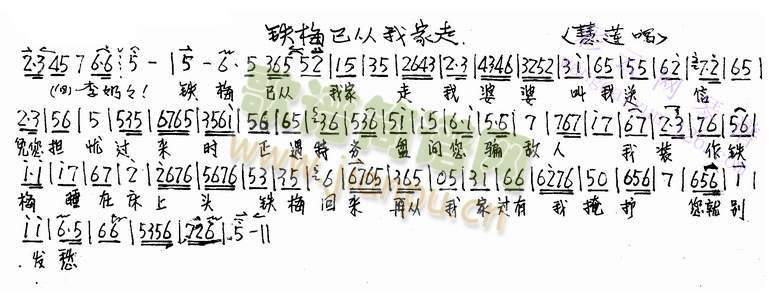 铁梅已从我家走 (慧莲唱)
2·3 45 7 6·6 5 - | 5 - 6· 5 365 52 | 15 | 35 | 2643 | 2·3 | 4346 | 3252 | 3i | 65 | 55 | 62 | 7·2 | 65 |
(白)李奶奶! 铁梅 已从我家 走 我婆婆 叫我送 信
2·3 | 56 | 5 | 535 | 6765 | 356i | 56 | 65 | 36 | 536 | 5i | i5 | 6·i | 5·5 | 7 | 767 | i7 | 67 | 2·3 | 76 | 56 |
免您担忧过来时 正遇特务盘问您骗敌人 我装作铁
i·i | i7 | 67 | 2· | 2676 | 5676 | 53 | 35 | 6 | 6765 | 365 | 05 | 3i | 66 | 6276 | 50 | 656 | 7 | 656 | i |
梅睡在床上头 铁梅回来再从我家过有我掩护 您就别
ii | 6·5 | 66 | 5356 | 726 | 5 - ||
发愁
www.jianpu.cn